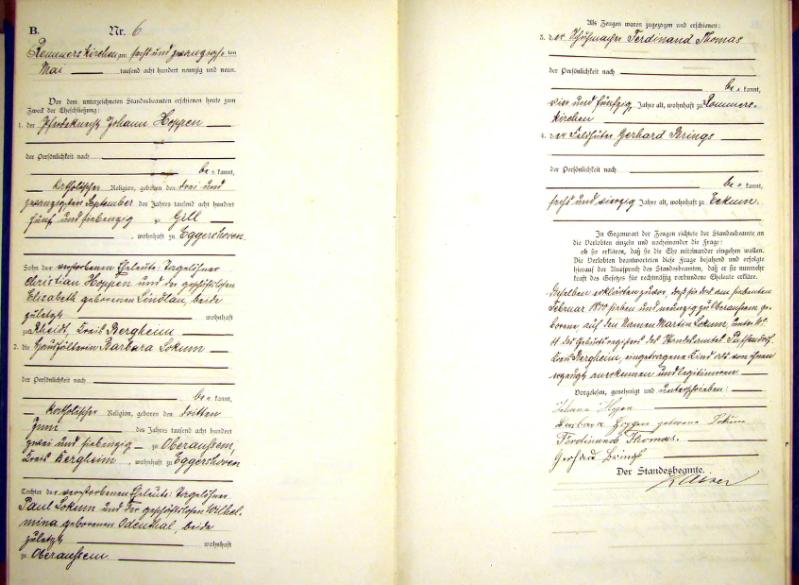 B. Nr. 6
Rommerskirchen am sechs und zwanzigsten
Mai tausend acht hundert neunzig und neun.
Vor dem unterzeichneten Standesbeamten erschienen heute zum
Zweck der Eheschließung:
1. der Pferdeknecht Johann Hoppen
der Persönlichkeit nach
be kannt,
katholischer Religion, geboren den drei und
zwanzigsten September des Jahres tausend acht hundert
fünf und siebenzig zu Gill
, wohnhaft zu Eggershoven
Sohn der verstorbenen Eheleute: Tagelöhner
Christian Hoppen und der geschäftslosen
Elisabeth geborenen Lindlau, beide
zuletzt wohnhaft
zu Rheidt, Kreis Bergheim
2. die Haushälterin Barbara Lokum
der Persönlichkeit nach
be kannt,
katholischer Religion, geboren den dritten
Juni des Jahres tausend acht hundert
zwei und siebenzig zu Oberaußem,
Kreis Bergheim, wohnhaft zu Eggershoven
Tochter der verstorbenen Eheleute: Tagelöhner
Paul Lokum und der geschäftslosen Wilhel-
mina geborenen Odenthal, beide
zuletzt wohnhaft
zu Oberaussem
Als Zeugen waren zugezogen und erschienen:
3. der Ferdinand Thomas
der Persönlichkeit nach
be kannt,
vier und fünfzig Jahre alt, wohnhaft zu Rommers-
kirchen
4. der Feldhüter Gerhard Brings
der Persönlichkeit nach
be kannt,
sechs und vierzig Jahre alt, wohnhaft zu Eckum.
In Gegenwart der Zeugen richtete der Standesbeamte an
die Verlobten einzeln und nacheinander die Frage:
ob sie erklären, daß sie die Ehe miteinander eingehen wollen.
Die Verlobten beantworteten diese Frage bejahend und erfolgte
hierauf der Ausspruch des Standesbeamten, daß er sie nunmehr
kraft des Gesetzes für rechtmäßig verbundene Eheleute erkläre.
Dieselben erklärten zuvor, daß sie das am siebenten
Februar 18 sieben und neunzig zu Oberaussem ge-
borene, auf den Namen Martin Lokum, unter No
11 des Geburtsregisters des Standesamtes Paffendorf,
Kreis Bergheim, eingetragene Kind als von ihnen
erzeugt anerkennen und legitimieren
Vorgelesen, genehmigt und unterschrieben:
Johann Hoppen
Barbara Hoppen geborene Lokum
Ferdinand Thomas.
Gerhard Brings
Der Standesbeamte.